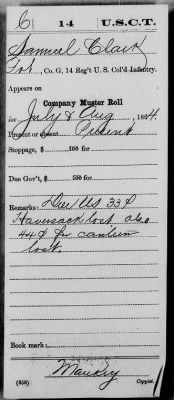 C 14 U.S.C.T.
Samuel Clark
Pvt, Co. G, 14 Reg't U. S. Col'd Infantry.
Appears on
Company Muster Roll
for July & Aug, 1864.
Present or absent Present
Stoppage, $ 100 for
Due Gov't, $ 100 for
Remarks: Due US 33¢
Haversack lost also
44¢ for canteen
lost.
Book mark:
Mackey
(858) Copyist.